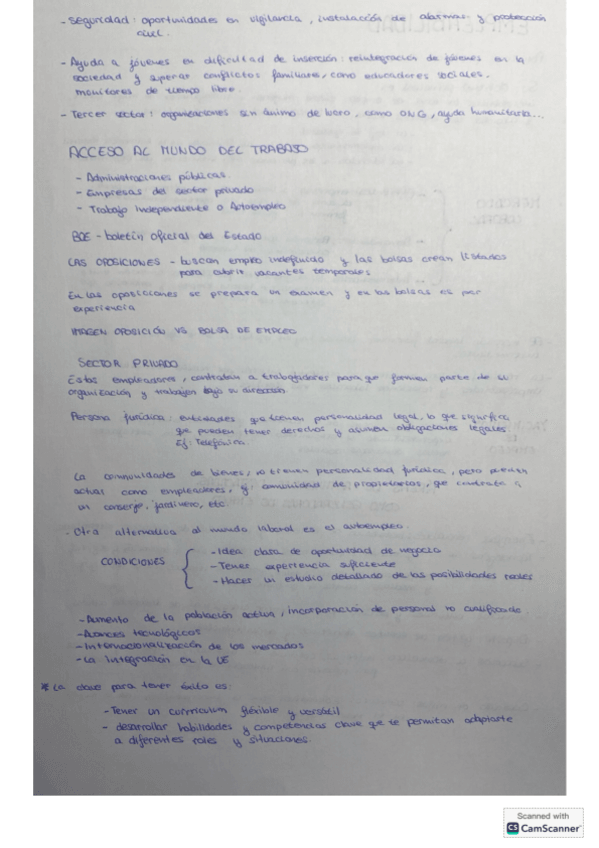 - Seguridad: oportunidades en vigilancia, instalacción de alarmas y protección
civil.
- Ayuda a jóvenes en dificultad de inserción: reintegración de jóvenes en la
sociedad y superar conflictos familiares, como educadores sociales,
monitores de tiempo libre.
- Tercer sector: organizaciones sin ánimo de lucro, como ONG, ayuda humanitaria...
ACCESO AL MUNDO DEL TRABAJO
- Administraciones públicas
- Empresas del sector privado
- Trabajo independiente o Autoempleo
BOE - boletín oficial del Estado
LAS OPOSICIONES - buscan empleo indefinido y las bolsas crean listados
para cubrir vacantes temporales
En las oposiciones se prepara un examen y en las bolsas es por
experiencia
IMAGEN OPOSICIÓN VS. BOLSA DE EMPLEO
SECTOR PRIVADO
Estos empleadores, contratan a trabajadores para que formen parte de su
organización y trabajen bajo su dirección.
Persona jurídica: entidades que tienen personalidad legal, lo que significa
que pueden tener derechos y asumen obligaciones legales.
Ej: Telefónica.
La comunidades de bienes, no tienen personalidad jurídica, pero pueden
actuar como empleadores, ej comunidad de propietarios, que contrata a
un conserje, jardinero, etc.
- Otra alternativa al mundo laboral es el autoempleo.
CONDICIONES { - Idea clara de oportunidad de negocio
- Tener experiencia suficiente
- Hacer un estudio detallado de las posibilidades reales
- Aumento de la población activa, incorporación de personal no cualificado
- Avances tecnológicos
- Internacionalización de los mercados
- La integración en la UE
* La clave para tener éxito es:
- Tener un currículum flexible y versátil
- desarrollar habilidades y competencias clave que te permitan adaptarte
a diferentes roles y situaciones.
Scanned with
CS CamScanner